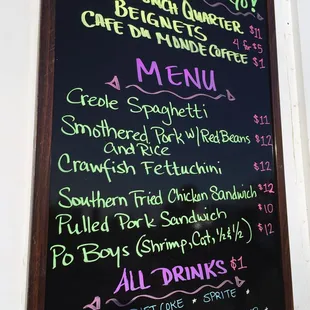 QUARTER $11
BEIGNETS 4 for $5
CAFE DU MONDE COFFEE $1
MENU
Creole Spaghetti $11
Smothered Pork w/ Red Beans and Rice $12
Crawfish Fettuchini $12
Southern Fried Chicken Sandwich $12
Pulled Pork Sandwich $10
Po Boys (Shrimp, Cat, ½ & ½) $12
ALL DRINKS $1
COKE * SPRITE *